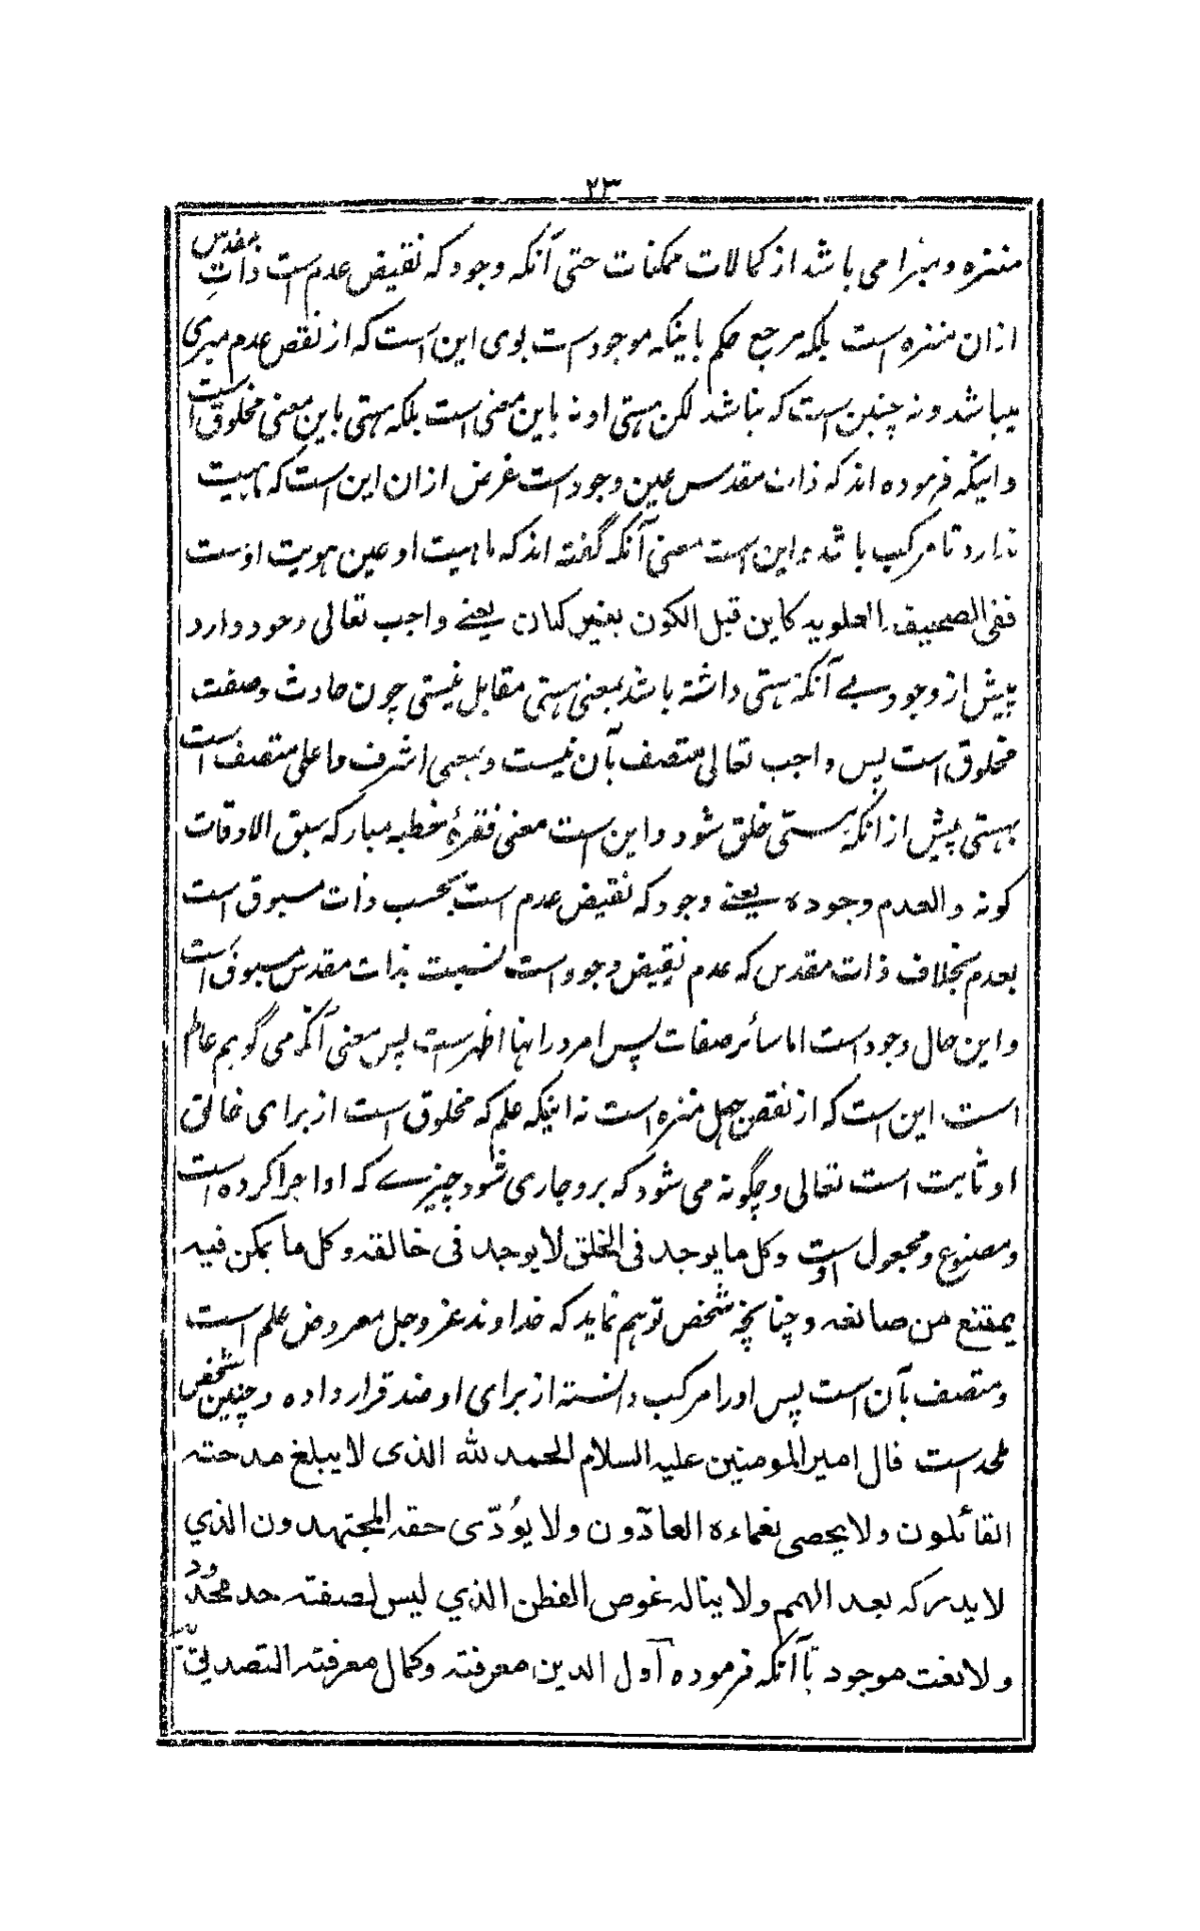 ٢٣
منزه و مبرا می باشد از کمالات ممکنات حتی آنکه وجود که نقیض عدم است ذاتِ مقدس
ازان منزه است بلکه مرجع حکم باینکه موجود است بوی این است که از نقص عدم مبری
میباشد و نه چنین است که نباشد لکن هستی او نه باین معنی است بلکه هستی باین معنی مخلوق است
و اینکه فرموده اند که ذات مقدس عین وجود است غرض ازان این است که ماهیت
ندارد تا مرکب باشد و این است معنی آنکه گفته اند که ماهیت او عین هویت اوست
ففی الصحیفه العلویه کاین قبل الکون بغیر کیان یعنے واجب تعالی وجود دارد
پیش از وجود بے آنکه هستی داشته باشد بمعنی هستی مقابل نیستی چون حادث و صفت
مخلوق است پس واجب تعالی متصف بآن نیست و بمعنی اشرف و اعلی متصف است
بهستی پیش از انکه هستی خلق شود و این است معنی فقرهٔ خطبه مبارکه سبق الاوقات
کونه والعدم وجوده یعنے وجود که نقیض عدم است بحسب ذات مسبوق است
بعدم بخلاف ذات مقدس که عدم نقیض وجود است نسبت بذات مقدس مسبوق است
و این حال وجود است اما سائر صفات پس امر در انها اظهر است پس معنی آنکه می گویم عالم
است این است که از نقص جهل منزه است نه اینکه علم که مخلوق است از برای خالق
او ثابت است تعالی و چگونه می شود که برو جاری شود چیزے که او اجرا کرده است
و مصنوع و مجعول اوست وکل ما یوجد فی الخلق لا یوجد فی خالقه وکل ما یمکن فیه
یمتنع من صانعه و چنانچه شخص توهم نماید که خداوند عز و جل معروض علم است
و متصف بآن است پس او را مرکب دانسته از برای او ضد قرار داده و چنین شخص
ملحد است قال امیر المومنین علیه السلام الحمد لله الذی لا یبلغ مدحته
القائلون ولا یحصی نعماءه العادّون ولا یُودّی حقه المجتهدون الذي
لا یدرکه بعد الهمم ولا یناله غوص الفطن الذي لیس لصفته حد محدود
ولا نعت موجود تا آنکه فرموده اول الدین معرفته وکمال معرفته التصدیق